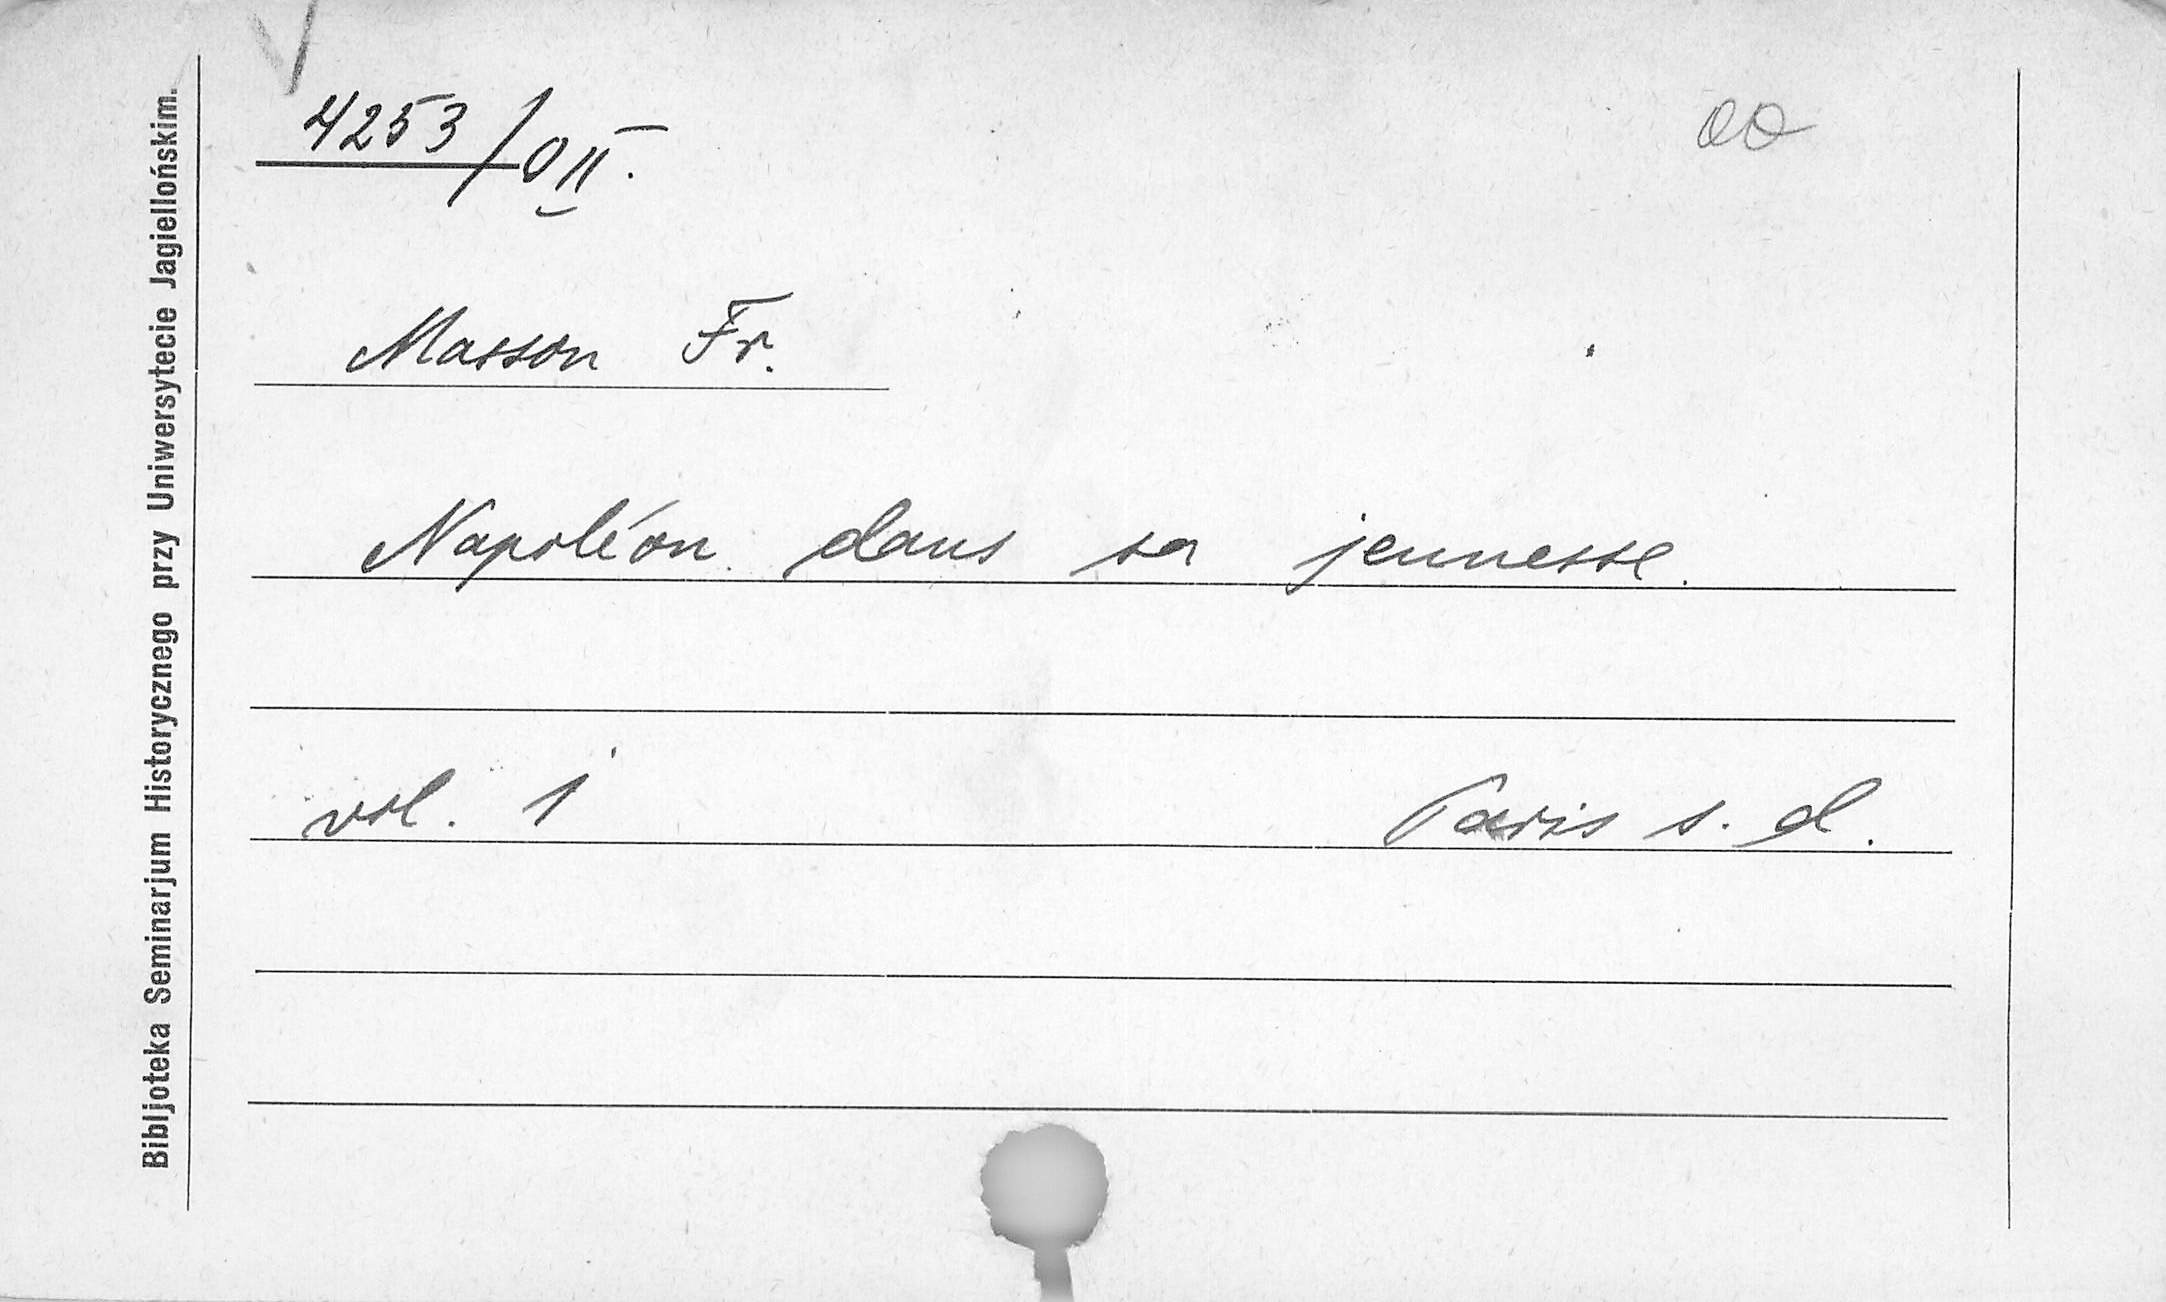 4253/OII.
Masson Fr.
Napoléon dans sa jeunesse.
vol. 1
Paris s. d.
Bibljoteka Seminarjum Historycznego przy Uniwersytecie Jagiellońskim.